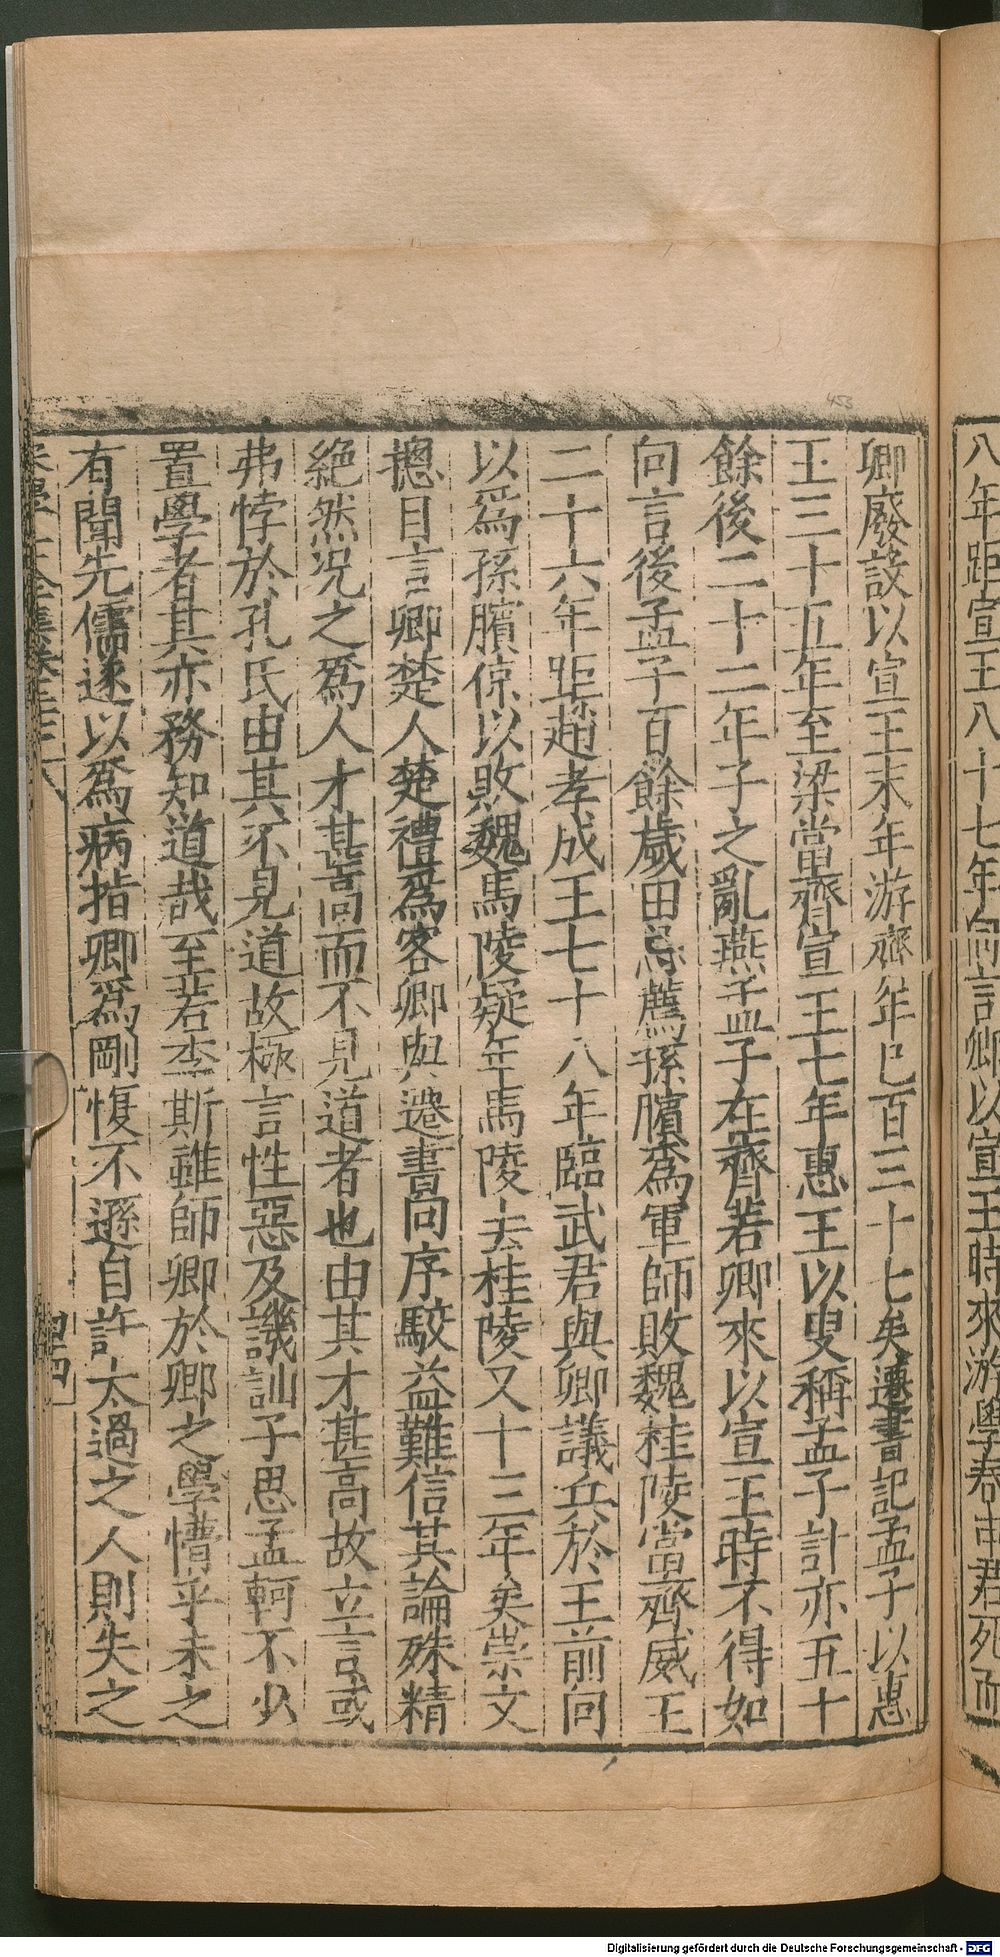 八年距宣王八十七年向言卿以宣王時來游學春申君死而
卿廢設以宣王末年游齊年已百三十七矣遷書記孟子以惠
王三十五年至梁當齊宣王七年惠王以叟稱孟子計亦五十
餘後二十二年子之亂燕孟子在齊若卿來以宣王時不得如
向言後孟子百餘歲田忌薦孫臏爲軍師敗魏桂陵當齊威王
二十六年距趙孝成王七十八年臨武君與卿議兵於王前向
以爲孫臏倞以敗魏馬陵疑年馬陵去桂陵又十三年矣崇文
摠目言卿楚人楚禮爲客卿與遷書向序駮益難信其論殊精
絶然況之爲人才甚高而不見道者也由其才甚高故立言或
弗悖於孔氏由其不見道故極言性惡及譏訕子思孟軻不少
置學者其亦務知道哉至若李斯雖師卿於卿之學懵乎未之
有聞先儒遂以爲病指卿爲剛愎不遜自許太過之人則失之
四
Digitalisierung gefördert durch die Deutsche Forschungsgemeinschaft - DFG